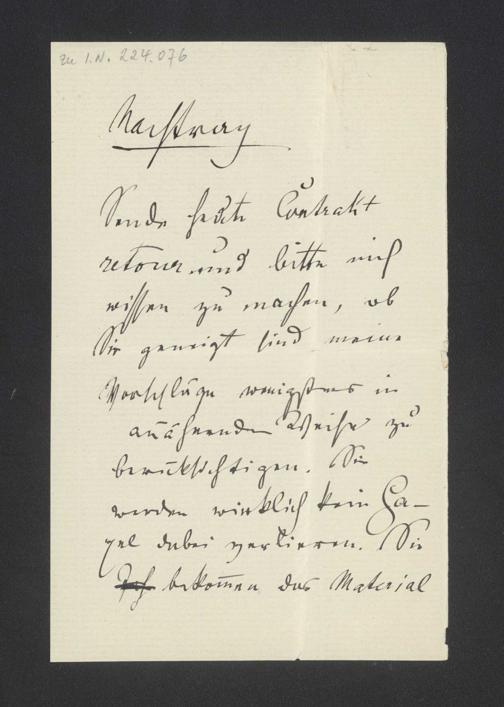 zu I.N. 224.076
Nachtrag
Sende heute Contrakt
retour und bitte mich
wissen zu machen, ob
Sie geneigt sind meine
Vorschläge wenigstens in
annähernder Weise zu
berücksichtigen. Sie
werden wirklich kein
dabei verlieren. Sie
bekom̄en das Material